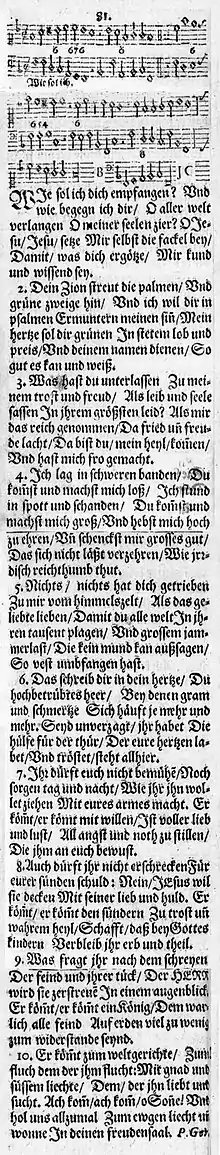 81.
6 6 76 8 6
Wie sol ich.
6 8
WJe sol ich dich empfangen? Vnd
wie begegn ich dir/ O aller welt
verlangen O meiner seelen zier? O Je-
su/ Jesu/ setze Mir selbst die fackel bey/
Damit/ was dich ergötze/ Mir kund
und wissend sey.
2. Dein Zion streut die palmen/ Vnd
grüne zweige hin/ Vnd ich wil dir in
psalmen Ermuntern meinen sin/ Mein
hertze sol dir grünen In stetem lob und
preis/ Vnd deinem namen dienen/ So
gut es kan und weiß.
3. Was hast du unterlassen Zu mei-
nem trost und freud/ Als leib und seele
sassen In jhrem größsten leid? Als mir
das reich genommen/ Da fried un̄ freu-
de lacht/ Da bist du/ mein heyl/ kom̄en/
Vnd hast mich fro gemacht.
4. Ich lag in schweren banden/ Du
kom̄st und machst mich loß/ Ich stund
in spott und schanden/ Du kom̄st und
machst mich groß/ Vnd hebst mich hoch
zu ehren/ Vn̄ schenckst mir grosses gut/
Das sich nicht läßt verzehren/ Wie jrr-
disch reichthumb thut.
5. Nichts/ nichts hat dich getrieben
Zu mir vom himmelszelt/ Als das ge-
liebte lieben/ Damit du alle welt In jh-
ren tausent plagen/ Vnd grossem jam-
merlast/ Die kein mund kan außsagen/
So vest umbfangen hast.
6. Das schreib dir in dein hertze/ Du
hochbetrübtes heer/ Bey denen gram
und schmertze Sich häuft je mehr und
mehr. Seyd unverzagt/ jhr habet Die
hülfe für der thür/ Der eure hertzen la-
bet/ Vnd tröstet/ steht allhier.
7. Jhr dürft euch nicht bemühē/ Noch
sorgen tag und nacht/ Wie jhr jhn wol-
let ziehen Mit eures armes macht. Er
köm̄t/ er köm̄t mit willen/ Ist voller lieb
und lust/ All angst und noth zu stillen/
Die jhm an euch bewust.
8. Auch dürft jhr nicht erschrecken Für
eurer sünden schuld: Nein/ JEsus wil
sie decken Mit seiner lieb und huld. Er
köm̄t/ er köm̄t den sündern Zu trost un̄
wahrem heyl/ Schafft/ daß bey Gottes
kindern Verbleib jhr erb und theil.
9. Was fragt jhr nach dem schreyen
Der feind und jhrer tück/ Der HERR
wird sie zerstreuē In einem augenblick.
Er köm̄t/ er köm̄t ein König/ Dem war-
lich alle feind Auf erden viel zu wenig
zum widerstande seynd.
10. Er köm̄t zum weltgerichte/ Zum
fluch dem der jhm flucht: Mit gnad und
süssem liechte/ Dem/ der jhn liebt und
sucht. Ach kom̄/ ach kom̄/ o Son̄e/ Vnd
hol uns allzumal Zum ewgen liecht und
wonne In deinen freudensaal. P. Ger.